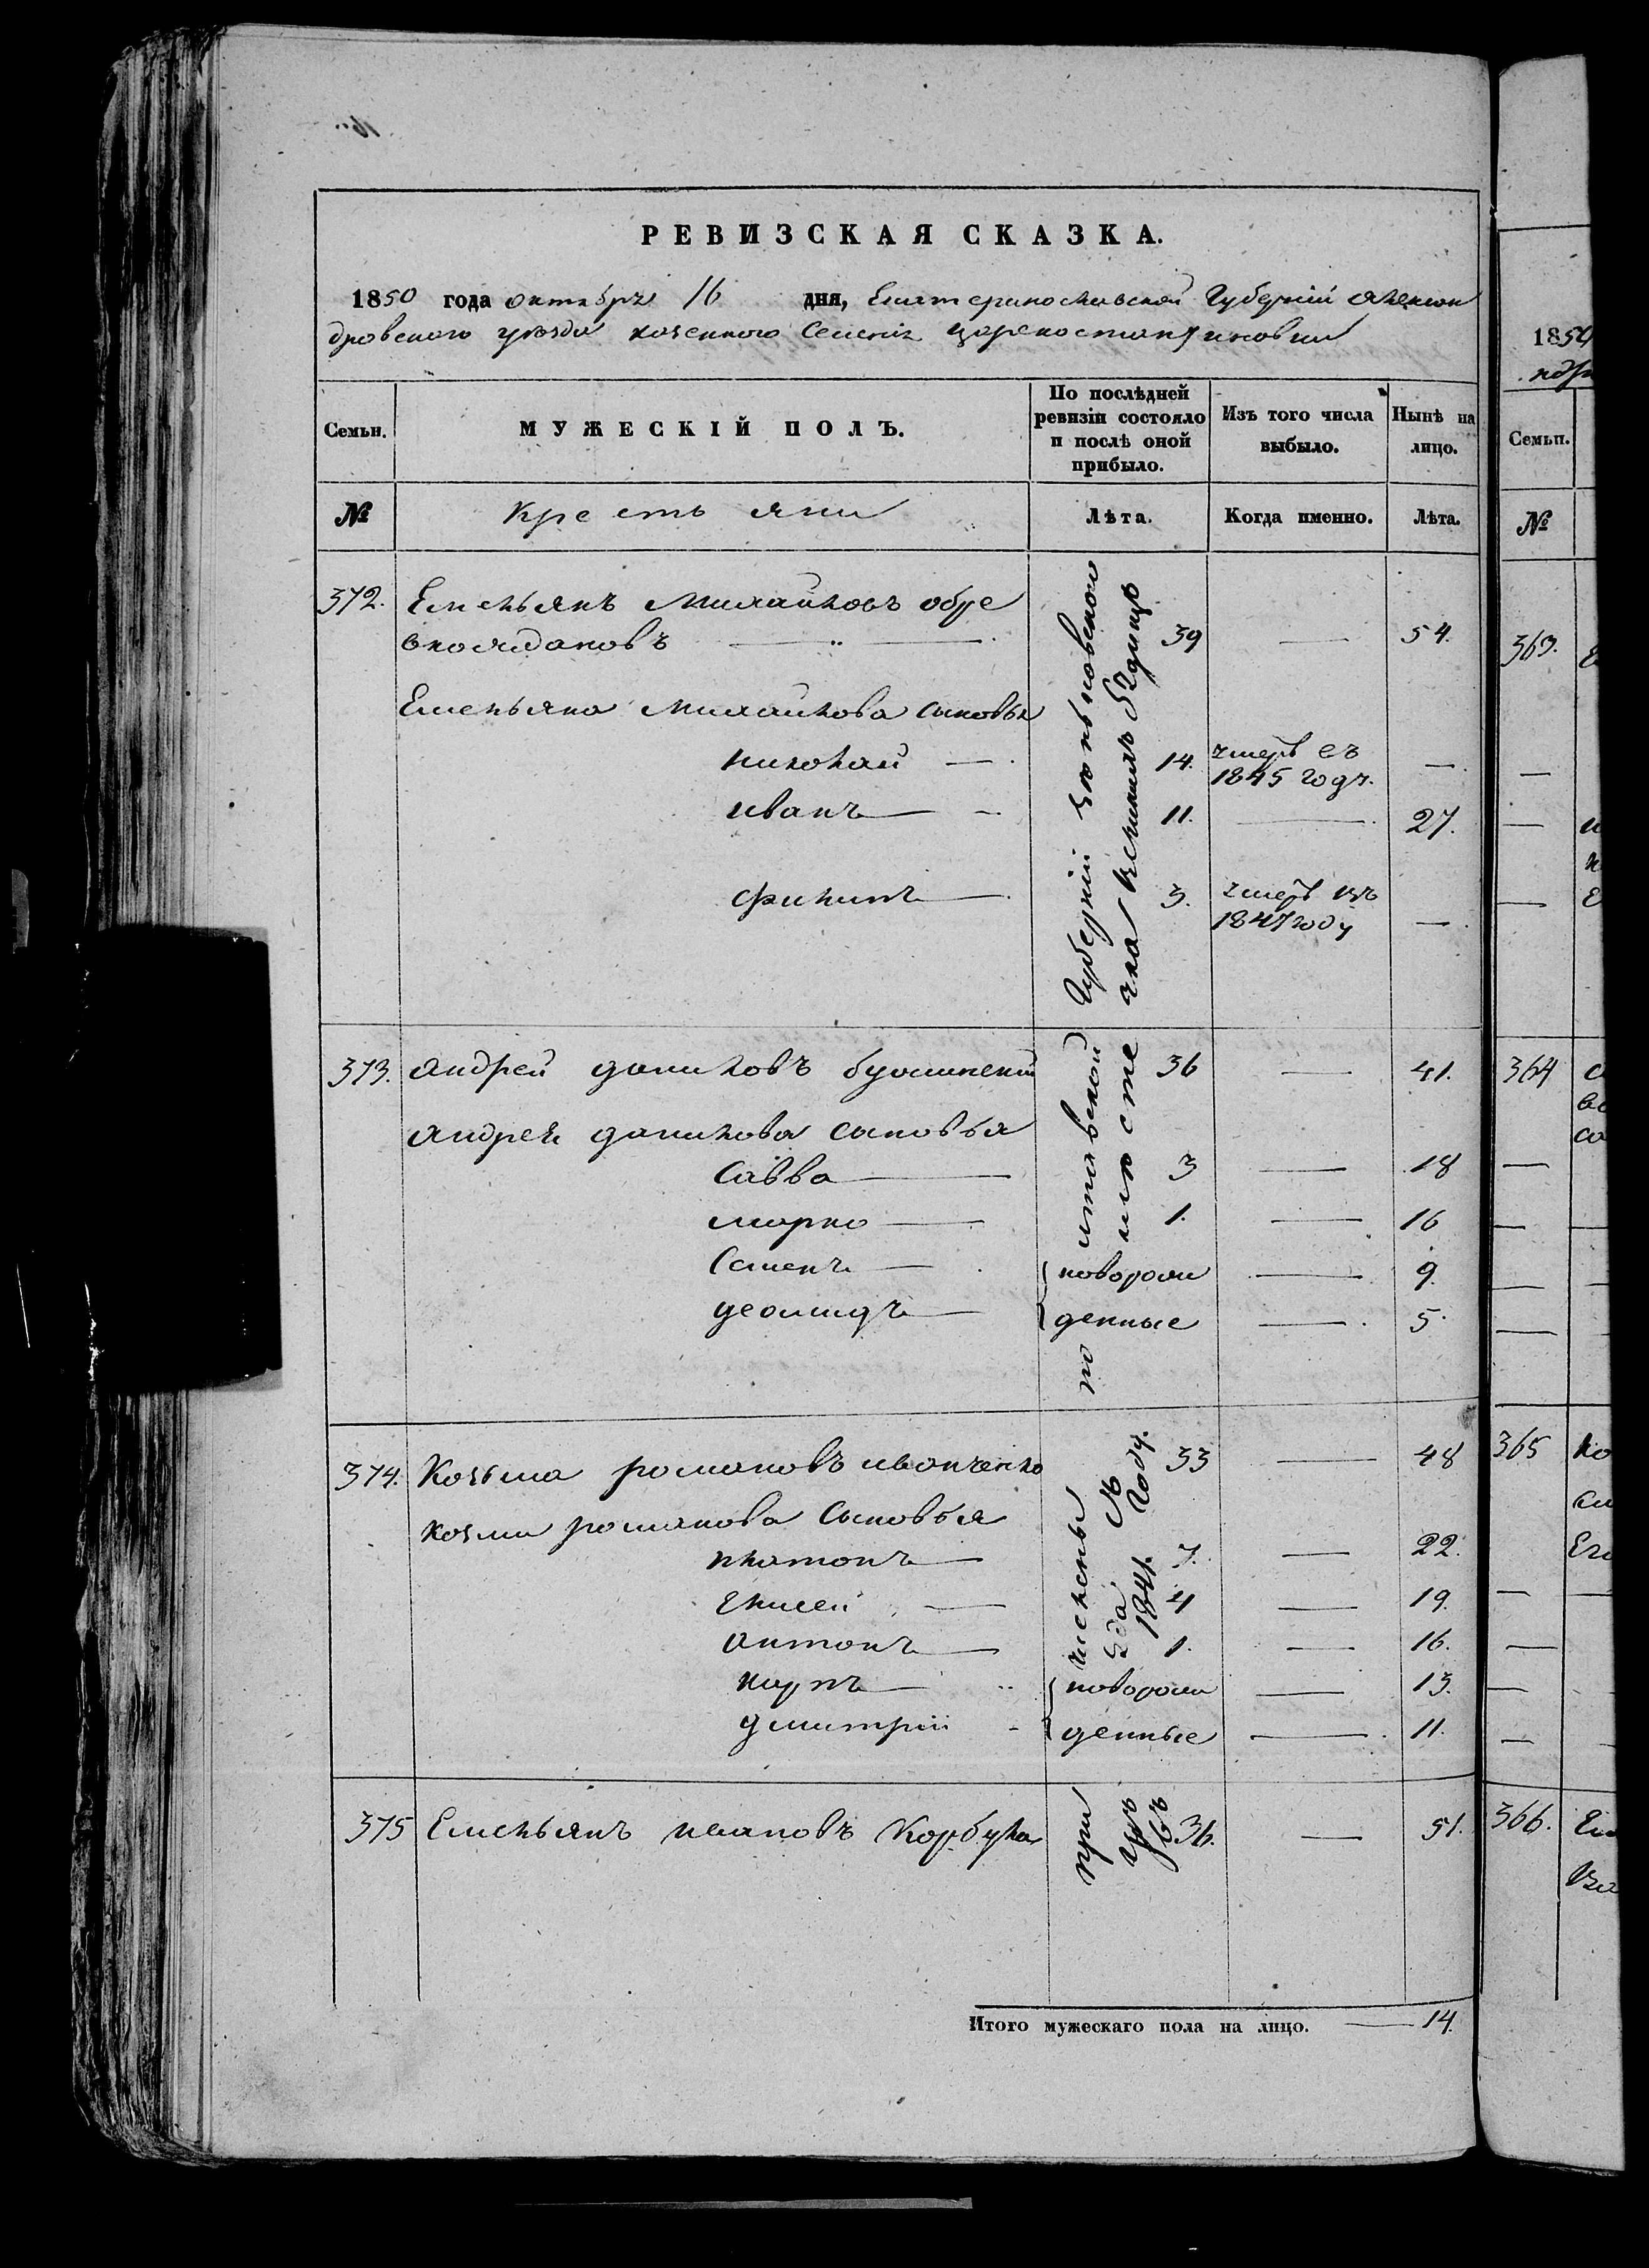 РЕВИЗСКАЯ СКАЗКА.
1850 года октября 16 дня, Екатеринославской Губерніи Алексан
дровского уезда казенного Селенія Цареконстантиновки
Семьи.
МУЖЕСКІЙ ПОЛЪ.
По послѣдней
ревизіи состояло
и послѣ оной
прибыло.
Изъ того числа
выбыло.
Нынѣ на
лицо.
№
Крестьяни
Лѣта.
Когда именно.
Лѣта.
372. Емельянъ Михайловъ
39 — 54.
Емельяна Михайлова сыновья
Николай — 14. умеръ въ
1845 году. —
Иванъ — 11. — 27.
Филипъ — 3. умеръ въ
1847 году —
373. Андрей Даниловъ 36 — 41.
Андрея Данилова сыновья
Савва — 3 — 18
Марко — 1. — 16
Семенъ — новорож — 9.
— денные — 5.
374. Козьма Романовъ Иванченко 33 — 48
Козми Романова сыновья
Платонъ — 7. — 22.
Елисей — 4 — 19.
Антонъ — 1. — 16.
Карпъ — новорож — 13.
Дмитрій - денные — 11.
375 Емельянъ Ивановъ 36. — 51.
по лтавской Губерніи
численны
1841. Году.
при
Итого мужескаго пола на лицо. — 14.
1850
Семьи.
№
363.
364
365
366.